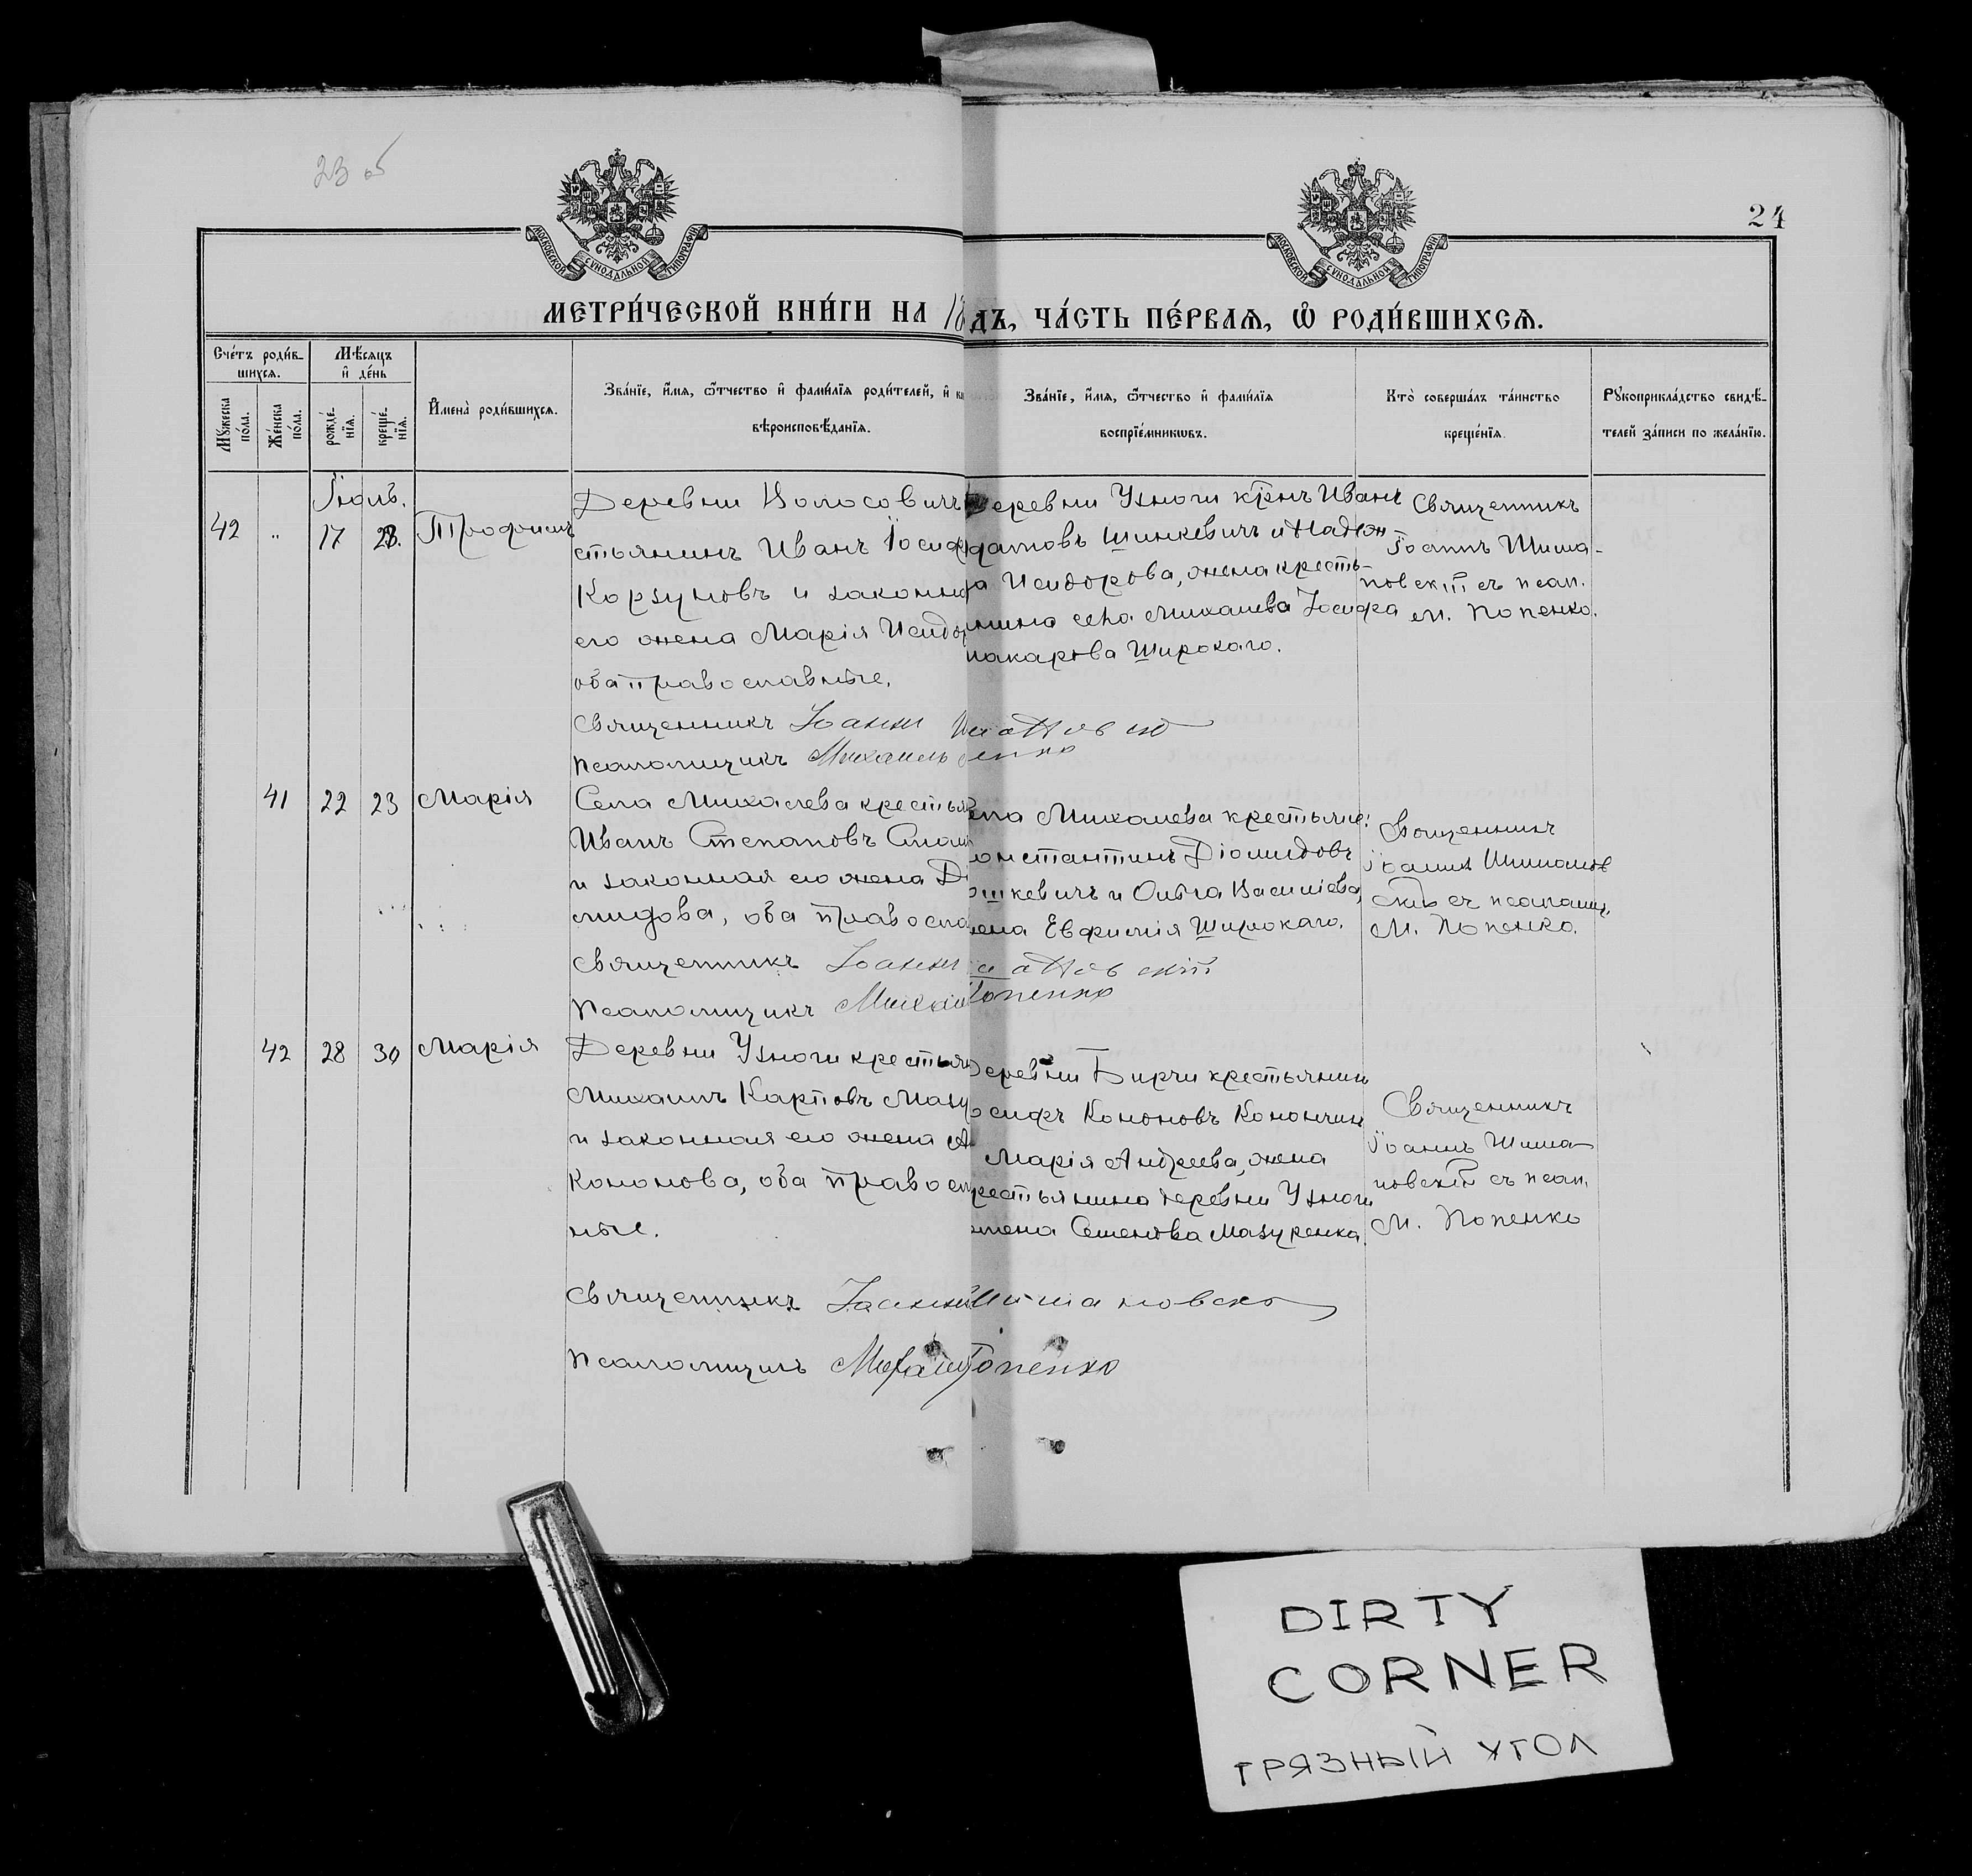 23 об
24
МОСКОВСКОЙ СѴНОДАЛЬНОЙ ТИПОГРАФІИ
МОСКОВСКОЙ СѴНОДАЛЬНОЙ ТИПОГРАФІИ
МЕТРИ́ЧЕСКОЙ КНИ́ГИ НА 18
ДЪ, ЧА́СТЬ ПЕ́РВАЯ, Ѡ҆ РОДИ́ВШИХСЯ.
Сче́тъ роди́в-
шихся.
Мꙋ́жеска
по́ла.
Же́нска
по́ла.
Мѣ́сяцъ
и҆ де́нь
рожде́-
нїя.
креще́-
нїя.
И҆мена̀ роди́вшихся.
Зва́нїе, и҆́мя, ѻ҆́тчество и҆ фами́лїя роди́телей, и҆
вѣроисповѣ́данїя.
Зва́нїе, и҆́мя, ѻ҆́тчество и҆ фами́лїя
воспрїе́мникѡвъ.
Кто̀ соверша́лъ та́инство
креще́нїя.
Рꙋкоприкла́дство свидѣ́-
телей за́писи по жела́нїю.
Іюль.
42 „ 17 28. Трофимъ
Деревни Волосовичъ
стьянинъ Иванъ Іосиф
Корзуновъ и законн
его жена Марія Исидор
оба православные.
Священникъ Іоаннъ
Псаломщикъ Михаилъ
Деревни Узноги кр-нъ Иванъ
Шинкевичъ и
Исидорова, жена кресть-
янина села Михалева Іосифа
Макарова Широкаго.
Священникъ
Іоаннъ Шима-
новскій съ псал.
М. Попенко.
41 22 23 Марія
Села Михалева крестьян
Иванъ Степановъ
и законная его жена Ді
мидова, оба правосла
Священникъ Іоаннъ
Псаломщикъ Михаил
ела Михалева крестьяне:
онстантинъ Діомидовъ
шкевичъ и Ольга Василіева,
жена Евфимія Широкаго.
новскій
Попенко
Священникъ
Іоаннъ Шиманов
скій съ псаломщ.
М. Попенко.
42 28 30 Марія
Деревни Узноги крестьян
Михаилъ Карповъ Мазу
и законная его жена
Кононова, оба правосл
ные.
Священникъ Іоаннъ Шимановскій
Псаломщикъ Михаилъ Попенко
Деревни Бирчи крестьянинъ
осифъ Кононовъ Кононч
Марія Андреева, жена
рестьянина деревни Узноги
Семенова Мазуренка.
Священникъ
Іоаннъ Шима-
новскій съ псал.
М. Попенко
DIRTY
CORNER
ГРЯЗНЫЙ УГОЛ